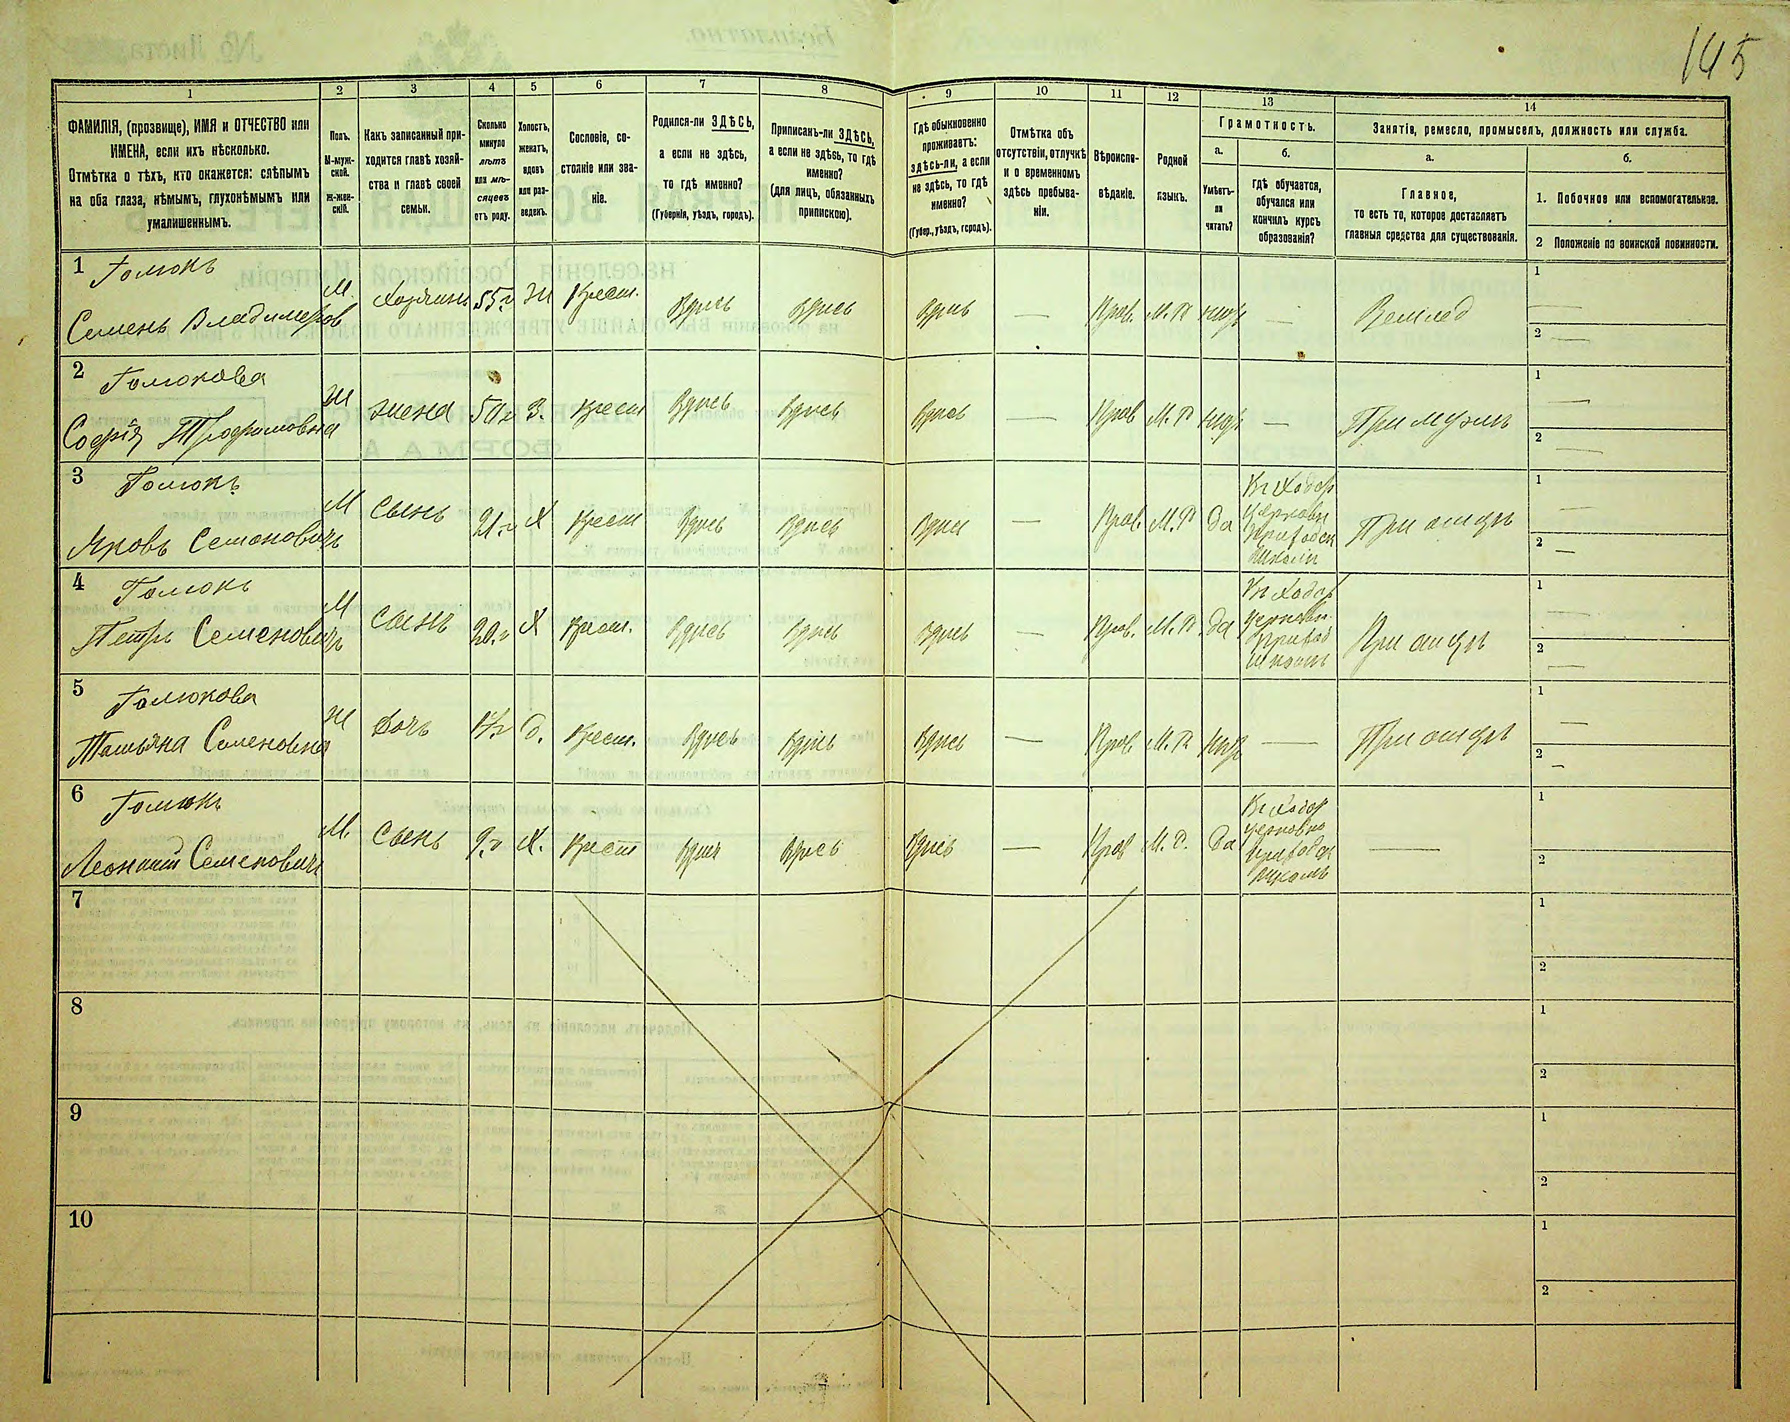 145
1 2 3 4 5 6 7 8 9 10 11 12 13 14
ФАМИЛІЯ, (прозвище), ИМЯ и ОТЧЕСТВО или
ИМЕНА, если ихъ нѣсколько.
Отмѣтка о тѣхъ, кто окажется: слѣпымъ
на оба глаза, нѣмымъ, глухонѣмымъ или
умалишеннымъ.
Полъ.
М-муж-
ской.
Ж-жен-
скій.
Какъ записанный при-
ходится главѣ хозяй-
ства и главѣ своей
семьи.
Сколько
минуло
лѣтъ
или мѣ-
сяцевъ
отъ роду.
Холостъ,
женатъ,
вдовъ
или раз-
веденъ.
Сословіе, со-
стояніе или зва-
ніе.
Родился-ли ЗДѢСЬ,
а если не здѣсь,
то гдѣ именно?
(Губернія, уѣздъ, городъ).
Приписанъ-ли ЗДѢСЬ,
а если не здѣсь, то гдѣ
именно?
(для лицъ, обязанныхъ
припискою).
Гдѣ обыкновенно
проживаетъ:
здѣсь-ли, а если
не здѣсь, то гдѣ
именно?
(Губер., уѣздъ, городъ).
Отмѣтка объ
отсутствіи, отлучкѣ
и о временномъ
здѣсь пребыва-
ніи.
Вѣроиспо-
вѣданіе.
Родной
языкъ.
Грамотность.
а.
Умѣетъ-
ли
читать?
б.
гдѣ обучается,
обучался или
кончилъ курсъ
образованія?
Занятіе, ремесло, промыселъ, должность или служба.
а.
Главное,
то есть то, которое доставляетъ
главныя средства для существованія.
б.
1. Побочное или вспомогательное.
2 Положеніе по воинской повинности.
1 Голюкъ
Семенъ Владимеров М. Хозяинъ 55 г. Ж Крест. Здесь Здесь Здесь — Прав. М. Р — Землед 1 — 2 —
2 Голюкова
Софія Трофимовна Ж жена 50 г З. Крест Здесь Здесь Здесь — Прав М. Р — 1 — 2 —
3 Голюкъ
Яковъ Семеновичъ М Сынъ 21 г Х Крест Здесь Здесь Здесь — Прав. М. Р да При отцъ 1 — 2 —
4 Голюкъ
Петръ Семеновичъ М Сынъ 20 г Х Крест. Здесь Здесь Здесь — Прав. М. Р да При отцъ 1 — 2 —
5 Голюкова
Татьяна Семеновна Ж Дочь д. Крест. Здесь Здесь Здесь — Прав М. Р — При отцъ 1 — 2 —
6 Голюкъ
Семеновичъ М. Сынъ 9 г Х. Крест Здесь Здесь Здесь — Прав М. Р. да — 1 2
7 1 2
8 1 2
9 1 2
10 1 2